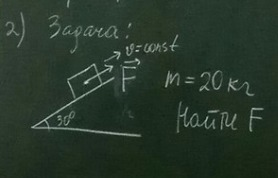 2) Задача:
v=const
F
m = 20 кг
30°
Найти F